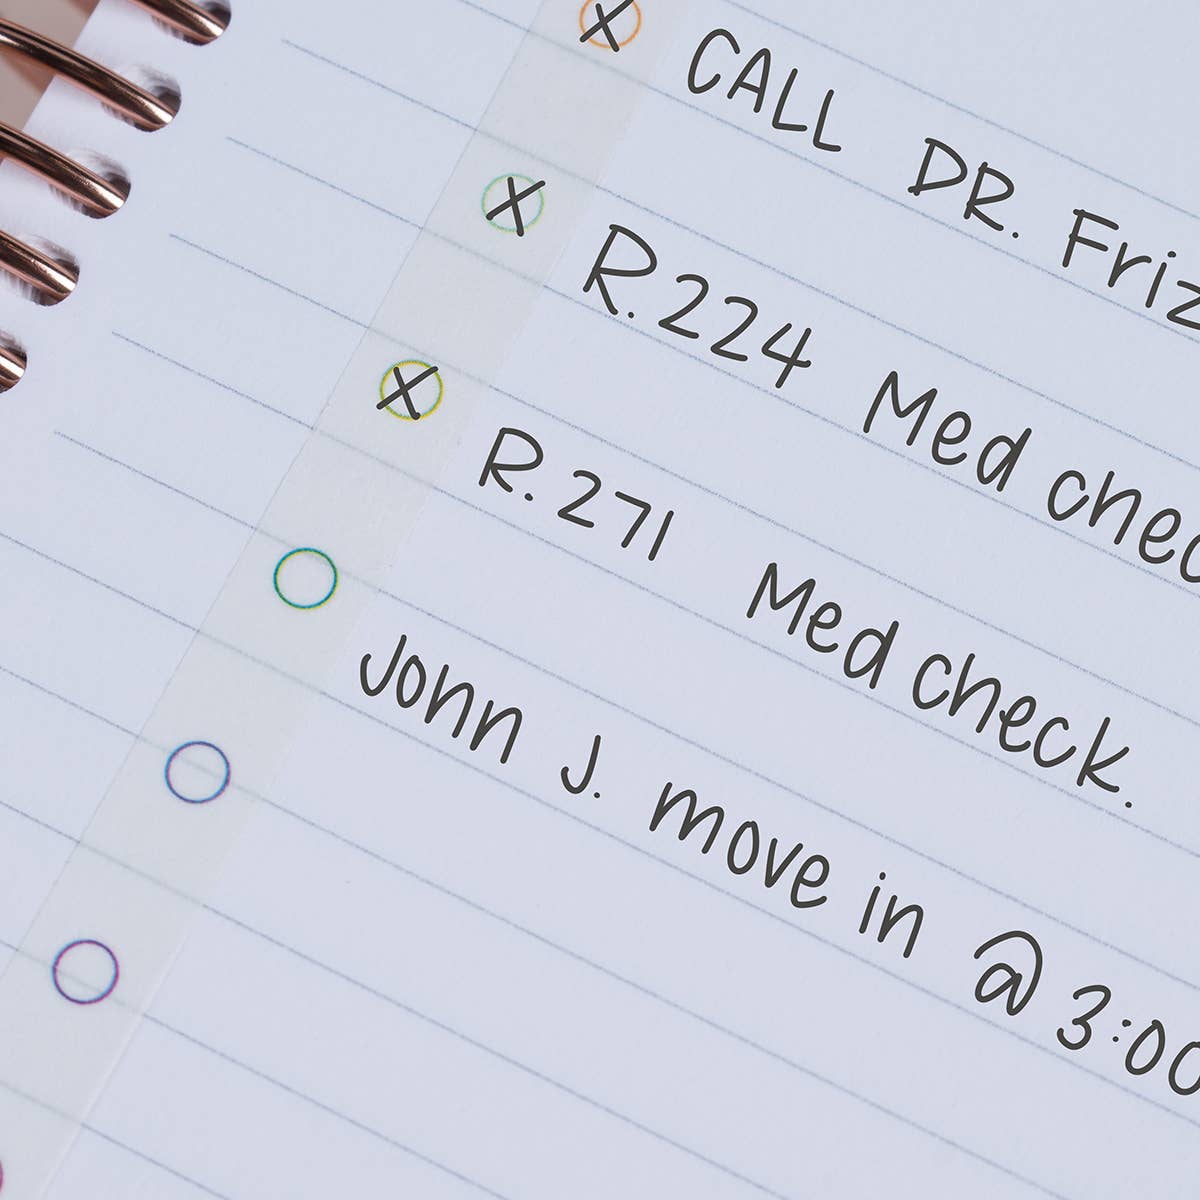 CALL DR. Friz
R. 224 Med chec
R. 271 Med check.
John J. move in @ 3:00